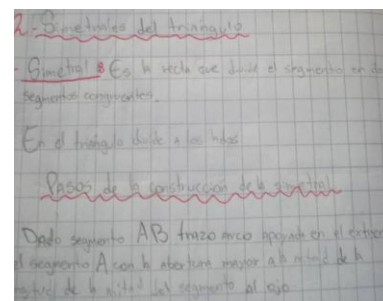 2-Simetrales del triángulo
- Simetral: Es la recta que divide el segmento en do
segmentos congruentes.
En el triángulo divide a los lados
Pasos de la construcción de la simetral
Dado segmento AB trazo arco apoyando en el extremo
el segmento A con la abertura mayor a la mitad de la
de la mitad del segmento al ojo.